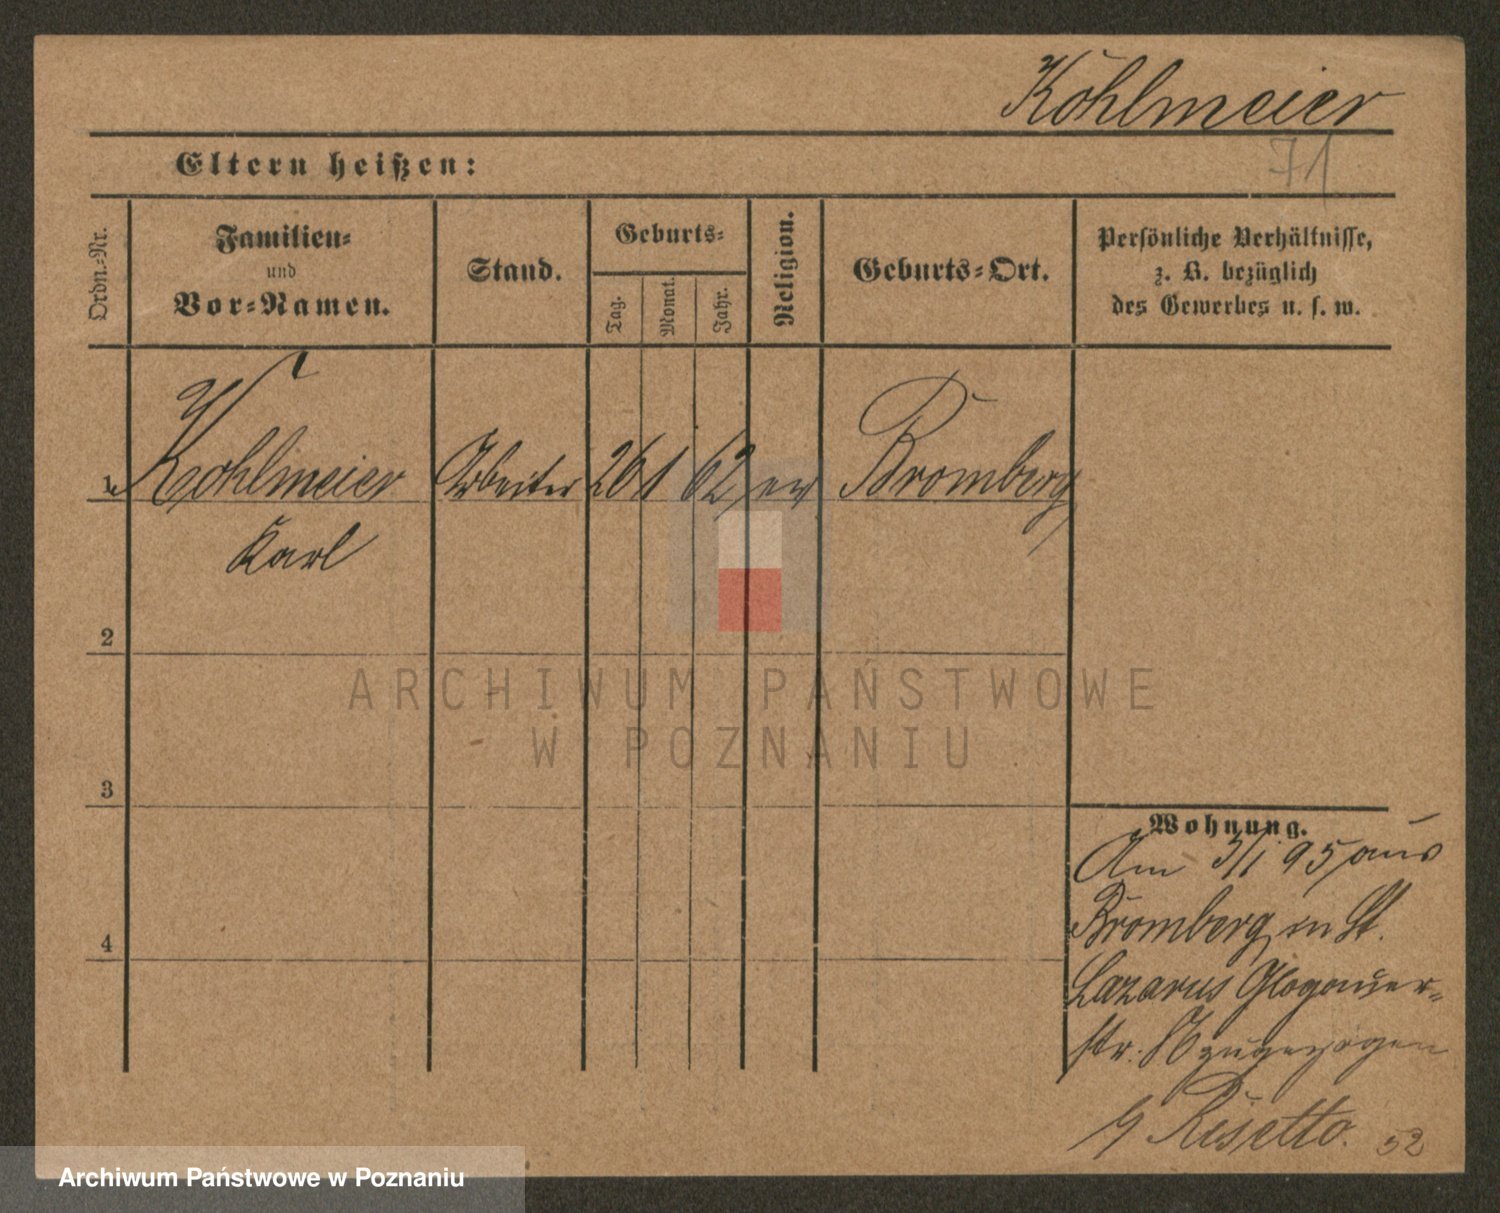 Kohlmeier
71
Eltern heißen:
Ordn.-Nr.
Familien-
und
Vor-Namen.
Stand.
Geburts-
Tag.
Monat.
Jahr.
Religion.
Geburts-Ort.
Persönliche Verhältnisse,
z. B. bezüglich
des Gewerbes u. s. w.
1. Kohlmeier Arbeiter 26 1 62 ev Bromberg
Karl
2
3
4
Wohnung.
Am 3/1 95 aus
Bromberg in St.
Lazarus Glogauer-
str. zugezogen
Risetto.
52
ARCHIWUM PAŃSTWOWE
W POZNANIU
Archiwum Państwowe w Poznaniu